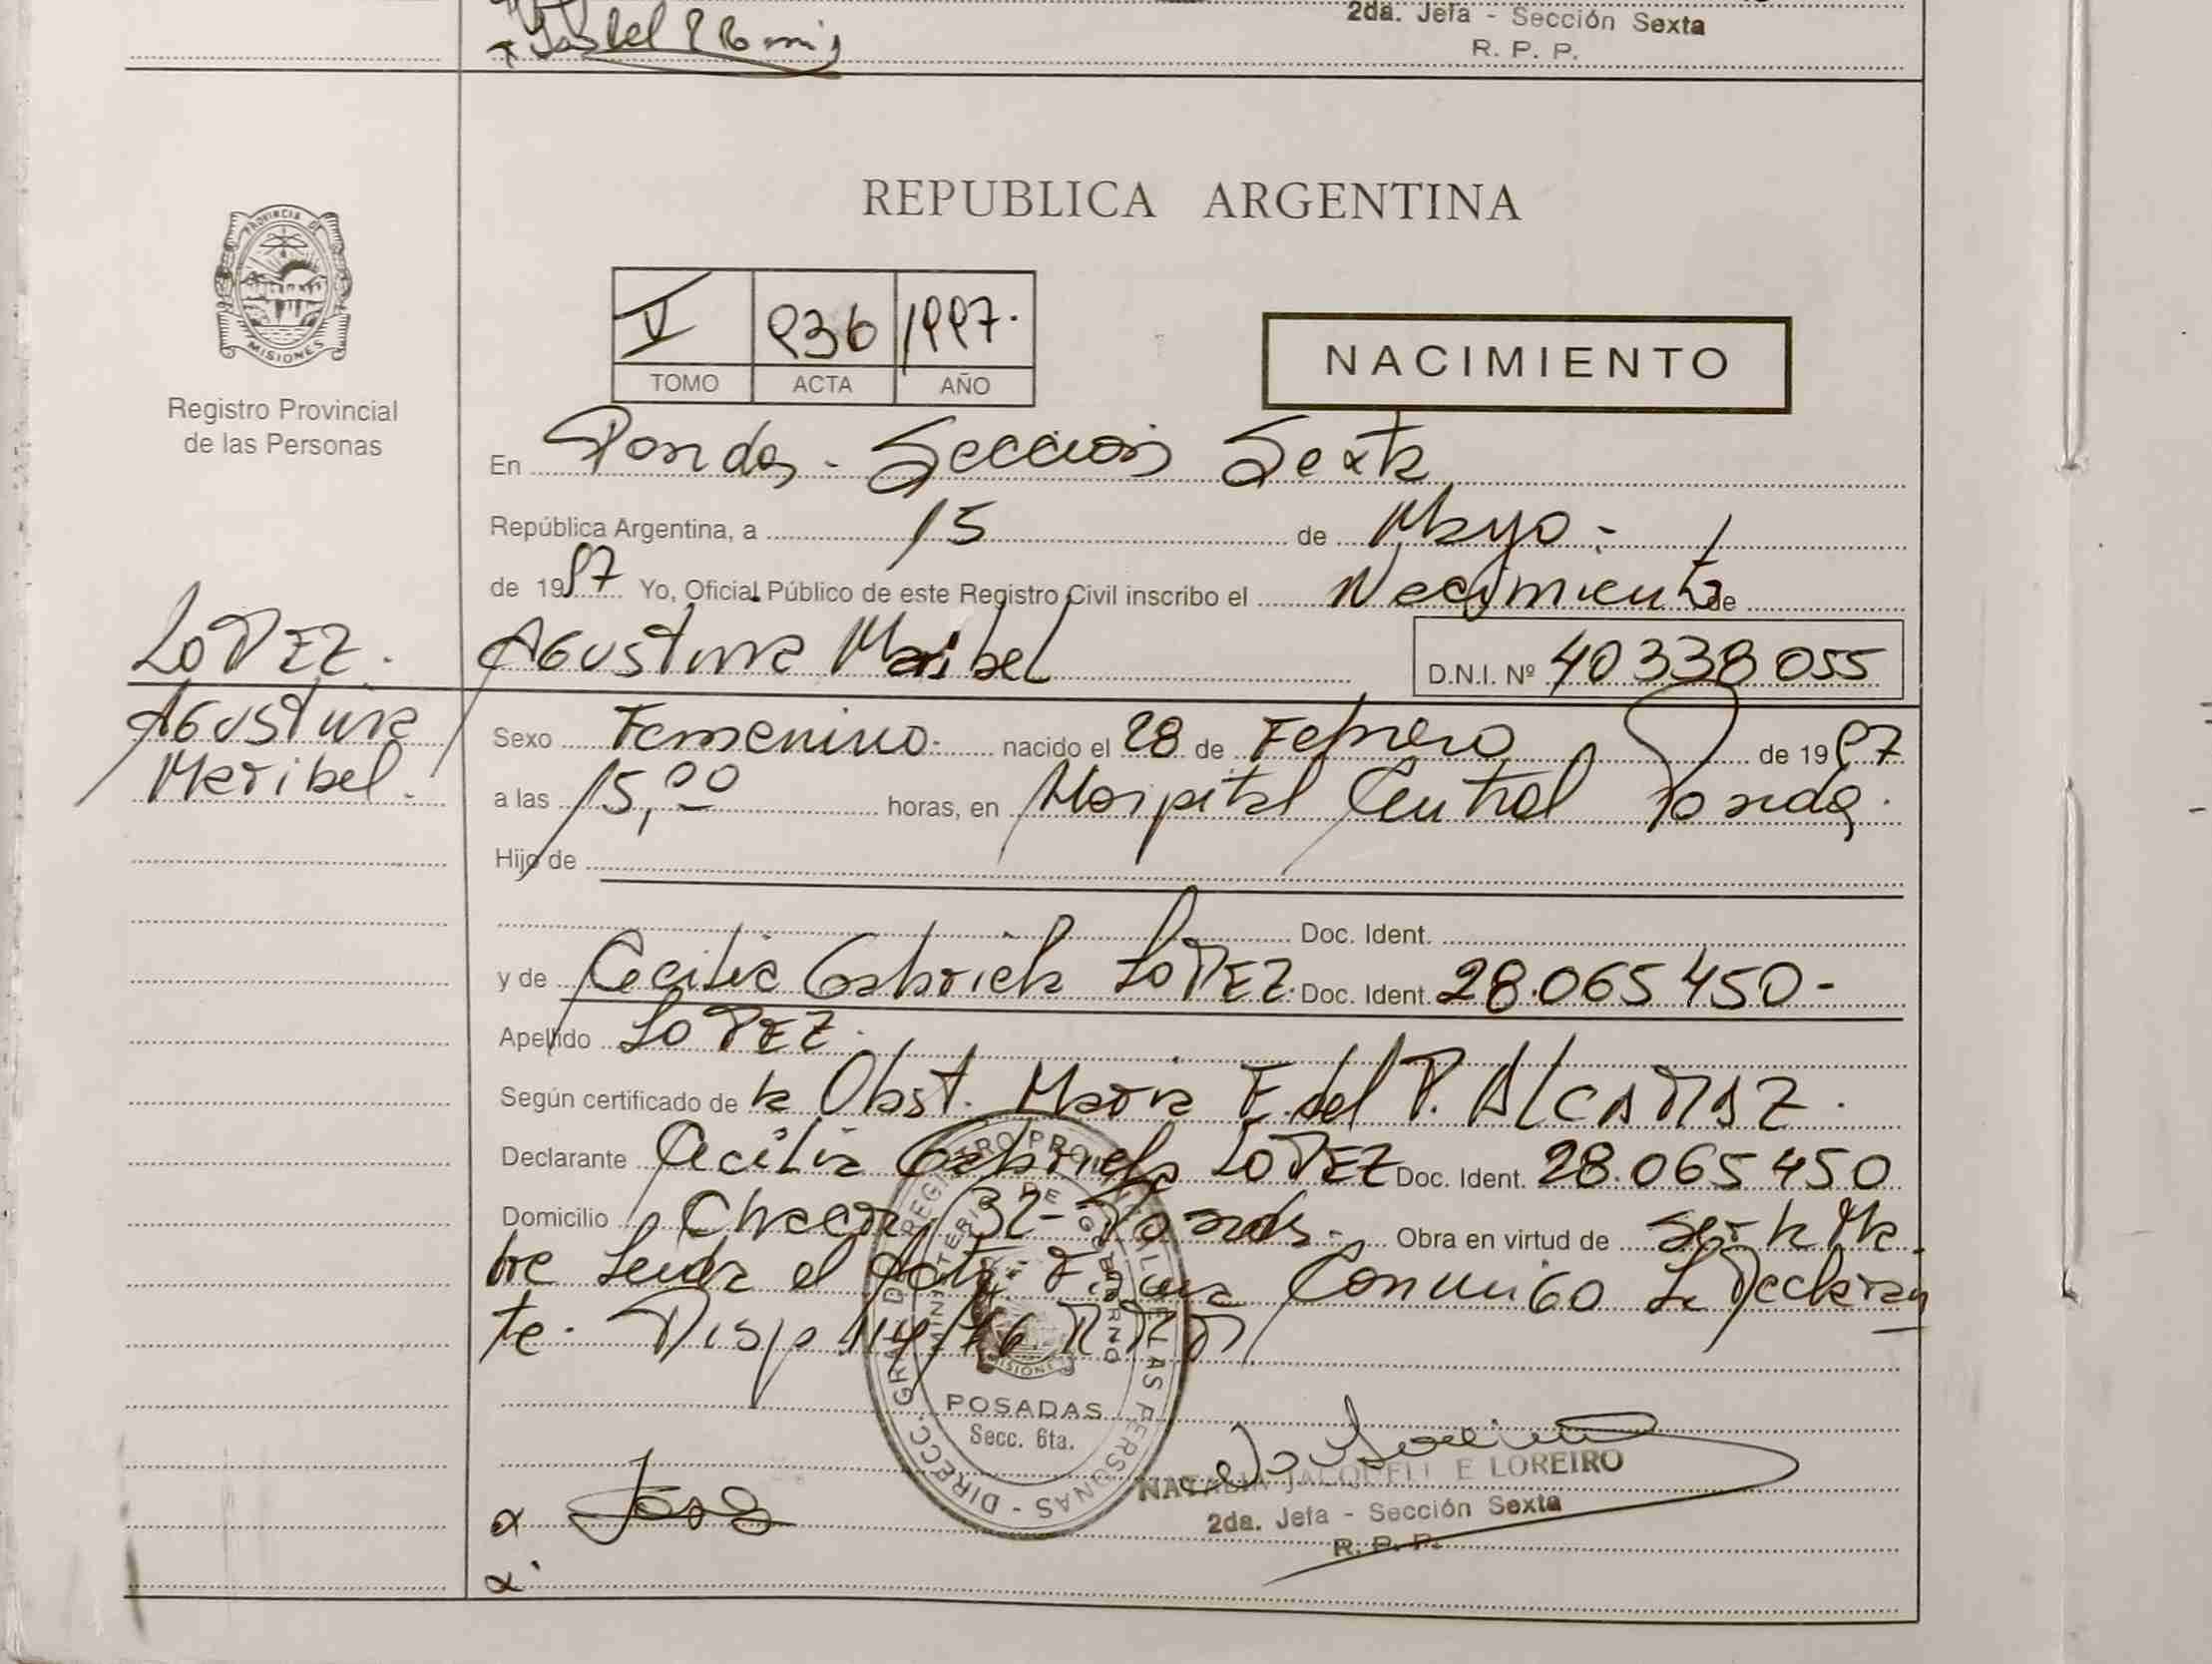 2da. Jefa - Sección Sexta
R. P. P.
REPUBLICA ARGENTINA
PROVINCIA DE
MISIONES
Registro Provincial
de las Personas
V 936 1997.
TOMO ACTA AÑO
NACIMIENTO
En Posadas - Sección Sexta
República Argentina, a 15 de Mayo -
de 1997 Yo, Oficial Público de este Registro Civil inscribo el Nacimiento de
LOPEZ.
Agustina
Maribel.
Agustina Maribel
D.N.I. Nº 40338055
Sexo Femenino. nacido el 28 de Febrero de 1997
a las 15,00 horas, en Hospital Central Posadas.
Hijo de
Doc. Ident.
y de Cecilia Gabriela LOPEZ. Doc. Ident. 28.065450-
Apellido LOPEZ.
Según certificado de la Obst. Maria E. del P. ALCARAZ.
Declarante Cecilia Gabriela LOPEZ Doc. Ident. 28.065450
Domicilio Chacra 132- Posadas. Obra en virtud de ser la Ma
dre Leida el Acta Firma Conmigo La Declaran
te. Disp 114/96 RPP
DIRECC. GRAL. DE REGISTRO PROVINCIAL DE LAS PERSONAS
MINISTERIO DE GOBIERNO
MISIONES
POSADAS
Secc. 6ta.
NATALIA JACQUELINE LOREIRO
2da. Jefa - Sección Sexta
R. P. P.